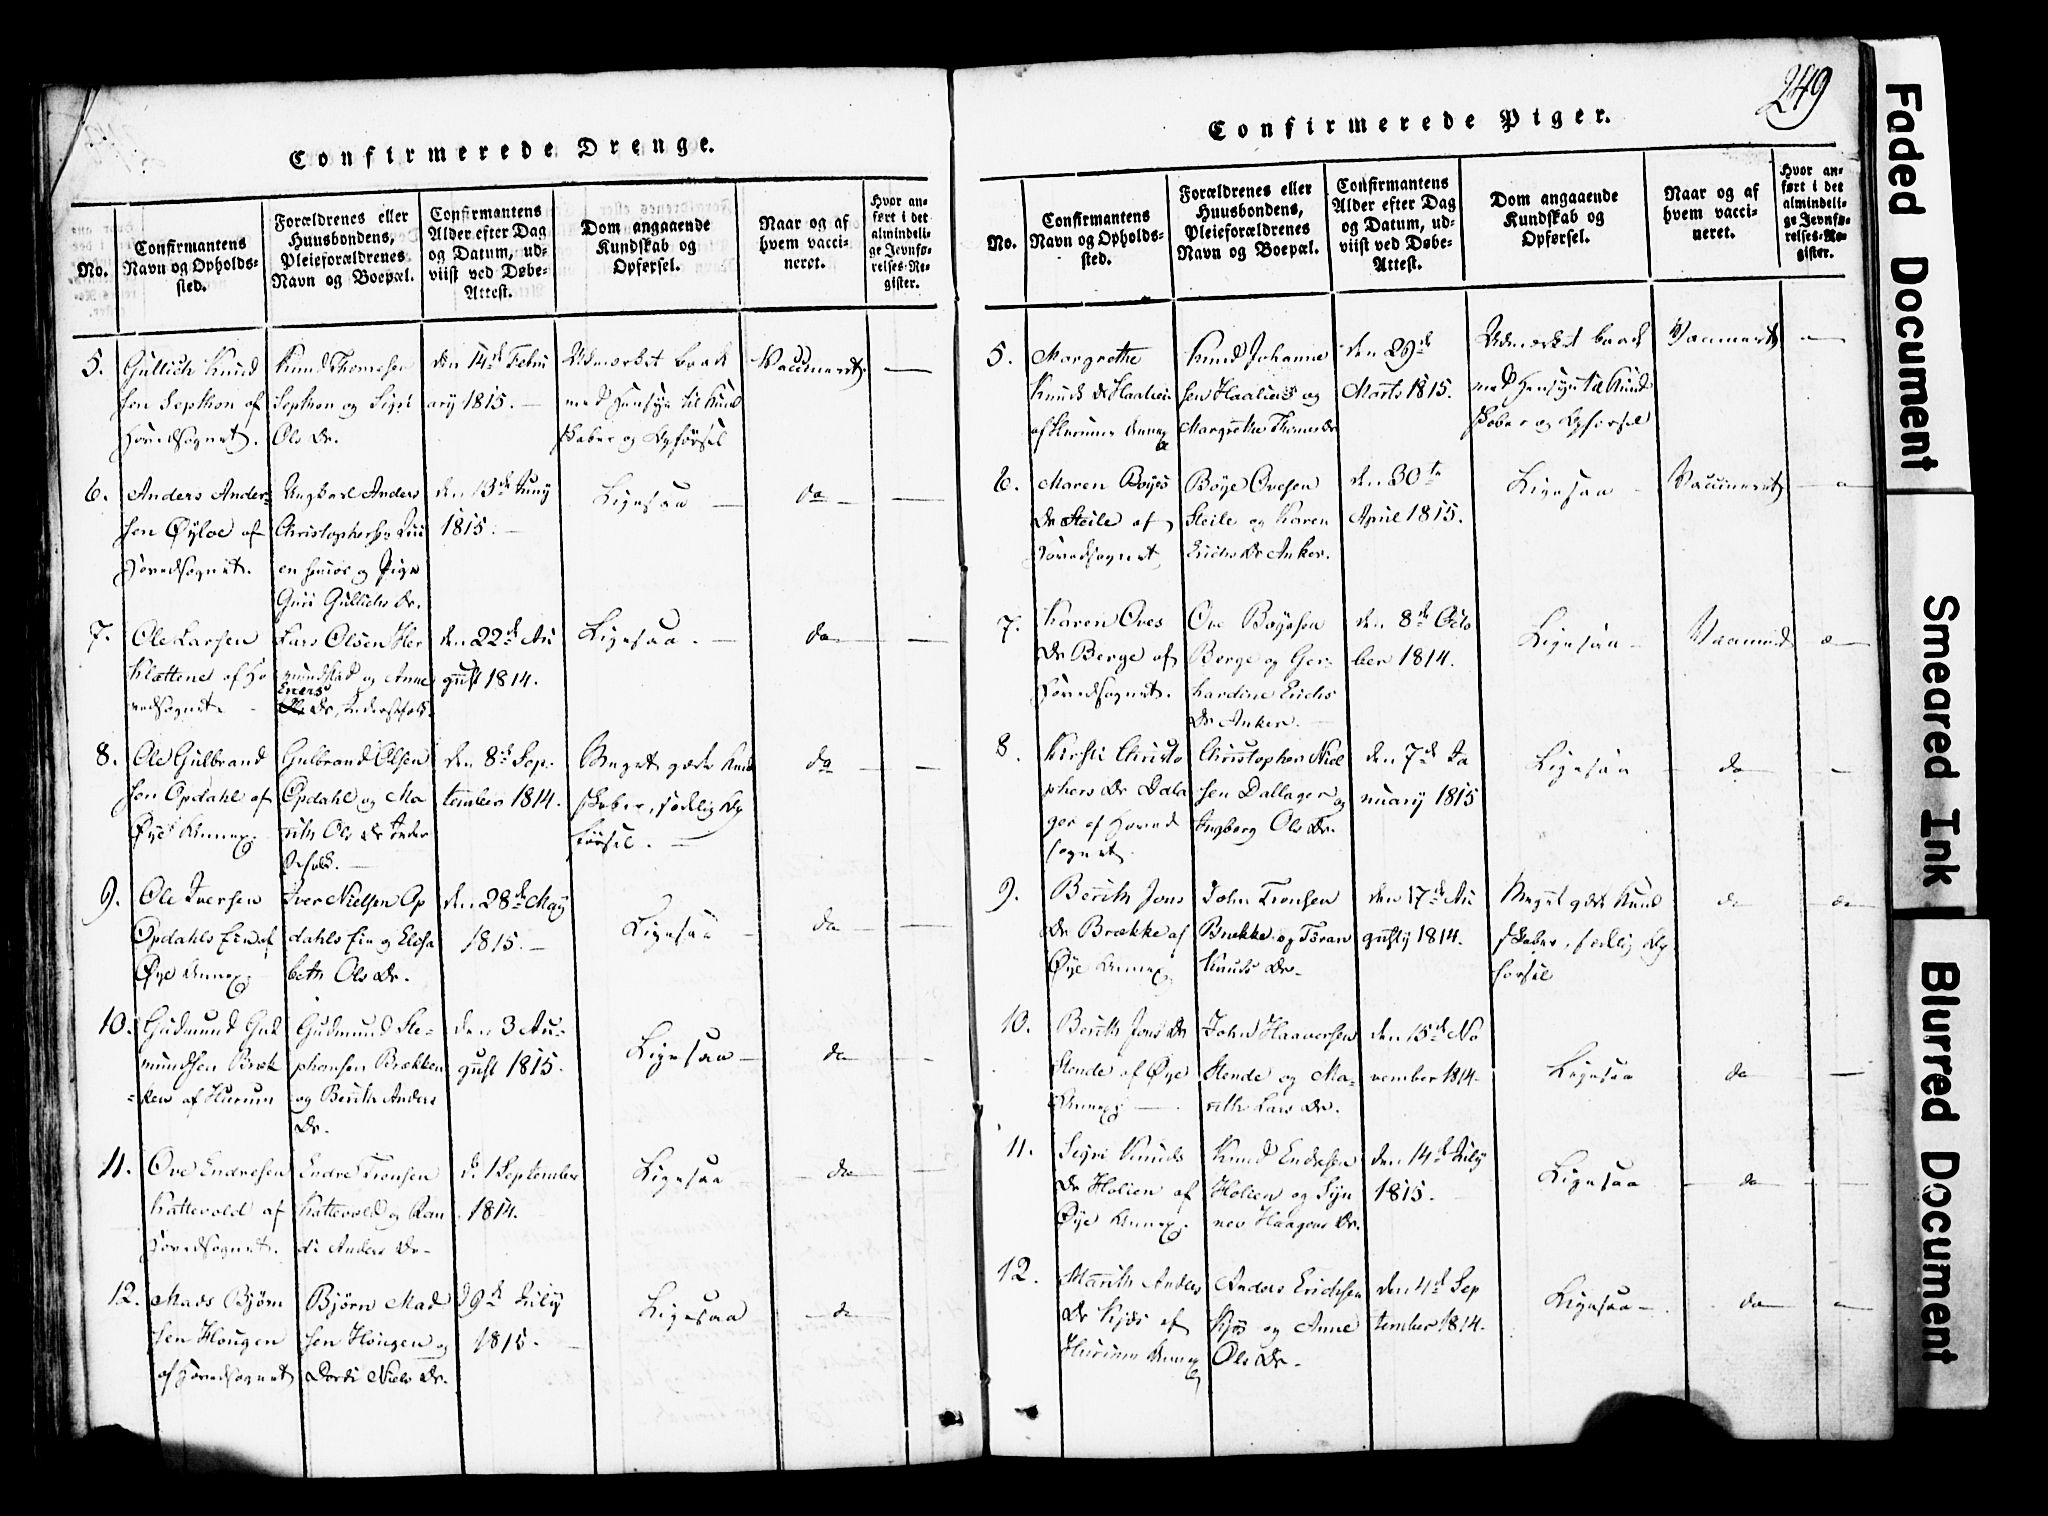 249
Confirmerede Drenge.
No.
Confirmantens Navn og Opholds-sted.
Forældrenes eller Huusbondens, Pleieforældrenes Navn og Boepæl.
Confirmantens Alder efter Dag og Datum, ud-viist ved Døbe-Attest.
Dom angaaende Kundskab og Opførsel.
Naar og af hvem vacci-neret.
Hvor an-ført i det almindeli-ge Jevnfø-relses-Re-gister.
5.
Gullich Knud
sen Sephon af
Hovedsognet.
Knud Thomesen
Sephon og Sigri
Ols Dr.
den 14de Febru
ary 1815. —
Udmærket baade
med Hensyn til Kund
skaber og Opførsel
Vaccineret
6.
Anders Ander-
sen Øyloe af
Hovedsognet.
Ungkarl Anders
Christophersen
og Pige
Guri Gullichs Dr.
den 13de Juny
1815. —
Ligesaa —
do —
7.
Ole Larsen
Klættene af Ho
vedsognet. -
Lars Olsen Her
mundstad og Anne
Eners
Dr,
den 22de Au
gust 1814.
Ligesaa. —
do
8.
Ole Gulbrand
sen Opdahl af
Øye Annex.
Gulbrand Olsen
Opdahl og Ma
rith Ols Dr
den 8de Sep-
tember 1814.
Meget gode Kund
skaber, sædelig Op
førsel. —
do
9.
Ole Iversen
Opdahls Eie af
Øye Annex
Iver Nielsen Op
dahls Eie og Elisa
beth Ols Dr.
den 28de May
1815. —
Ligesaa —
do
10.
Gudmund Gud
mundsen Bræk
ken af Hurum
Gudmund Ste-
phensen Brækken
og Berith Anders
Dr.
den 3 Au-
gust 1815.
Ligesaa —
do
11.
Ove Endresen
Kattevold af
Hovedsognet.
Endre Tronsen
Kattevold og Ran
di Anders Dr-
d. 1 September
1814.
Ligesaa
do
12.
Mads Bjørn
sen Hougen
af Hovedsognet
Bjørn Mad
sen Hougen og
Dordi Niels Dr.
d 9de July
1815.
Ligesaa
do
Confirmerede Piger.
No.
Confirmantens Navn og Opholds-sted.
Forældrenes eller Huusbondens, Pleieforældrenes Navn og Boepæl.
Confirmantens Alder efter Dag og Datum, ud-viist ved Døbe-Attest.
Dom angaaende Kundskab og Opførsel.
Naar og af hvem vacci-neret.
Hvor an-ført i det almindeli-ge Jevnfø-relses-Re-gister.
5.
Margrethe
Knuds Dr Haalien
af Hurum Annex
Knud Johanne
sen Haaliens og
Margrethe Thomes Dr
den 29de
Marts 1815.
Udmærket baade
med Hensyn til Kund
skaber og Opførsel
Vaccineret
6.
Maren Boyes
Dr Steile af
Hovedsognet
Boye Ovesen
Steile og Karen
Erichs Dr Anker.
den 30te
April 1815.
Ligesaa —
Vaccineret
7.
Karen Oves
Dr Berge af
Hovedsognet.
Ove Boyesen
Berge og Ger-
hardine Erichs
Dr Anker. —
den 8de Octo
ber 1814.
Ligesaa —
Vaccineret
8.
Kirsti Christo
phers Dr Dala
ger af Hoved
sognet
Christopher Niel
sen Dallager og
Ingborg Ols Dr.
den 7de Ja
nuary 1815
Ligesaa
do
9.
Berith Jons
Dr Brække af
Øye Annex
John Tronsen
Brække og Toran
Knuds Dr-
den 17de Au
gusty 1814.
Meget gode Kund
skaber, sædelig Op
førsel
do
10.
Berith Jons Dr
Stende af Øye
Annex —
John Haavorsen
Stende og Ma-
rith Lars Dr.
den 15de No
vember 1814-
Ligesaa
do
11.
Sigri Knuds
Dr Holien af
Øye Annex.
Knud Endresen
Holien og Syn
nev Haagens Dr.
den 14de July
1815.
Ligesaa
do
12.
Marith Anders
Dr Kjøs af
Hurum Annex
Anders Erichsen
Kjøs og Anne
Ols Dr-
den 4de Sep
tember 1814-
Ligesaa —
do
Faded Document
Smeared Ink
Blurred Document